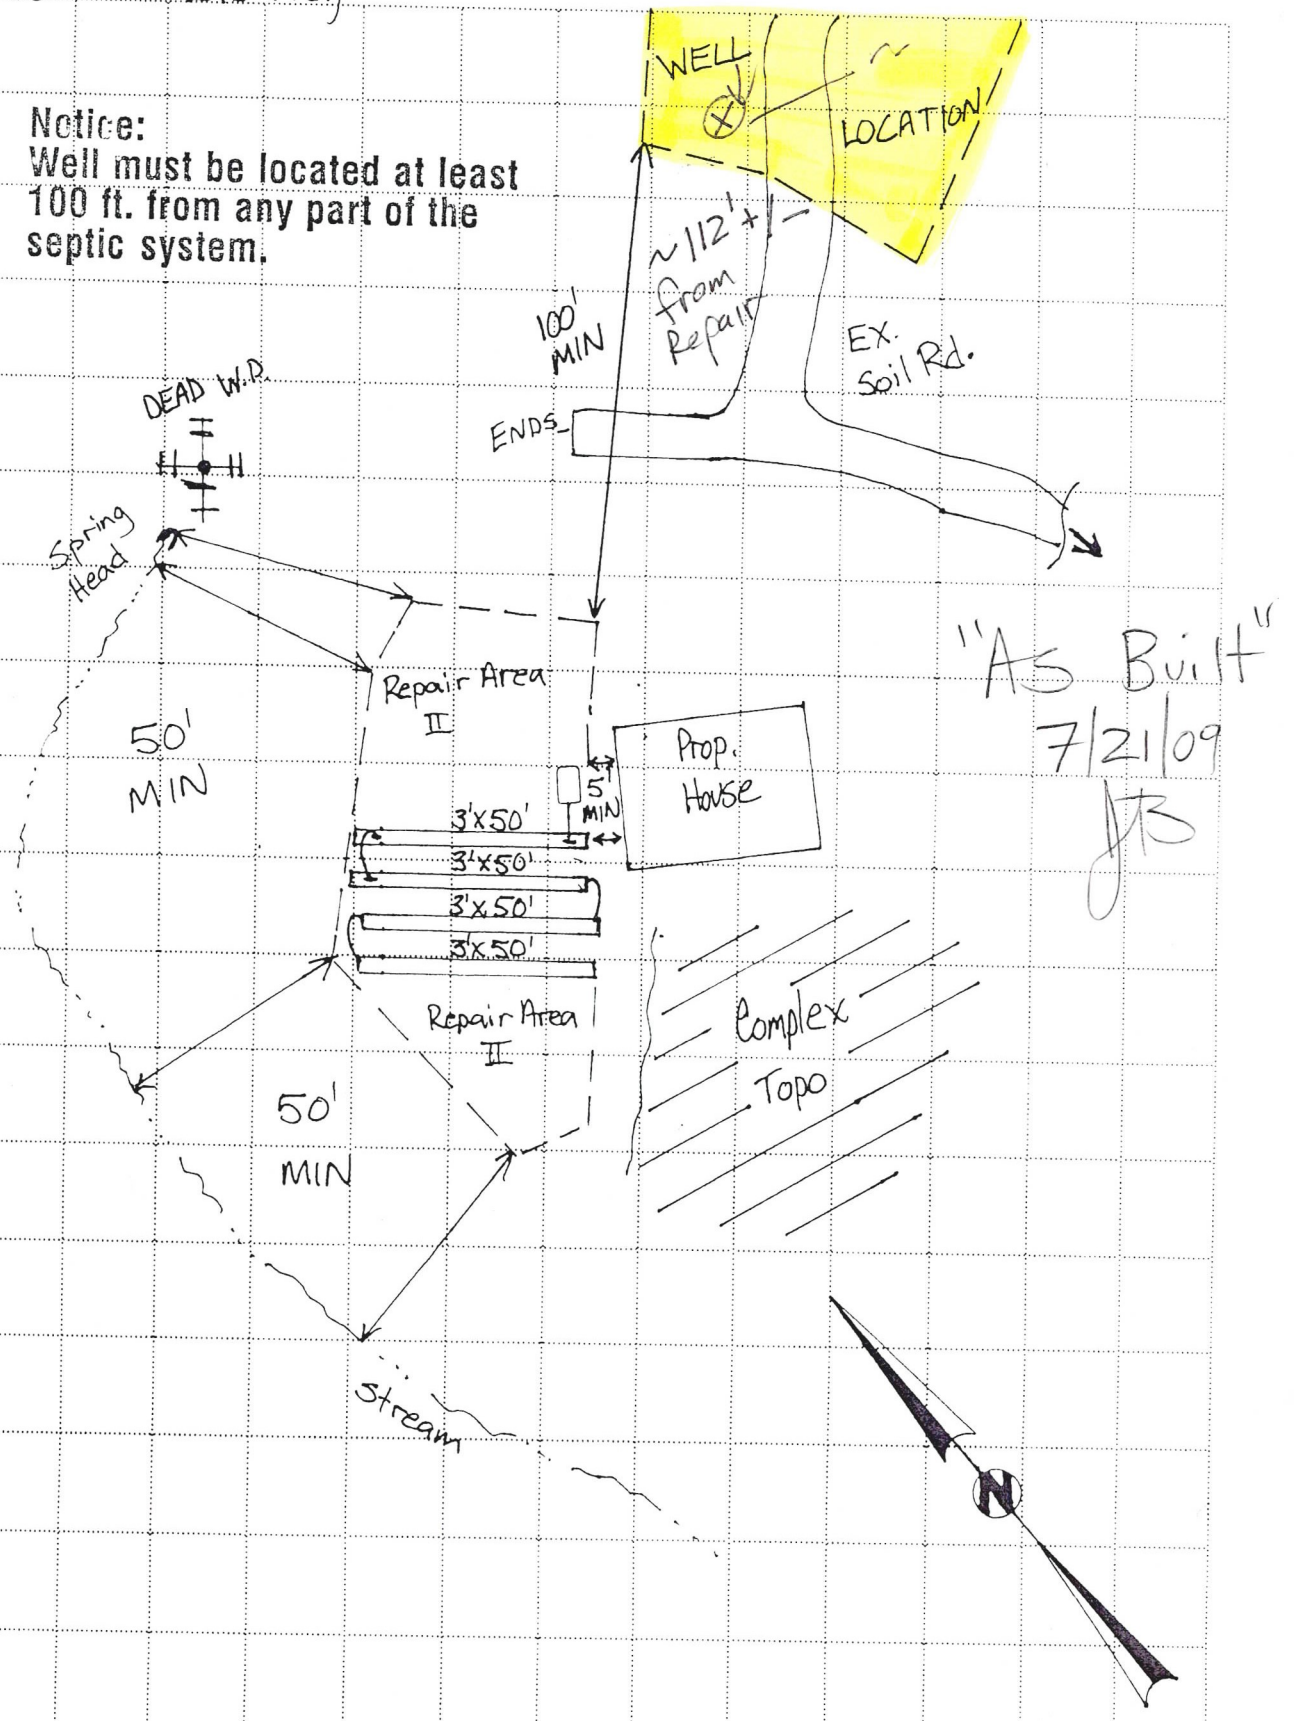 Notice:
Well must be located at least
100 ft. from any part of the
septic system.
WELL
LOCATION
~112' +/-
from
Repair
100'
MIN
EX.
Soil Rd.
ENDS
DEAD W.P.
Spring
Head
"As Built"
7/21/09
JTB
Repair Area
II
50'
MIN
Prop.
House
5'
MIN
3'X50'
3'X50'
3'X50'
3'X50'
Repair Area
II
Complex
Topo
50'
MIN
Stream
N